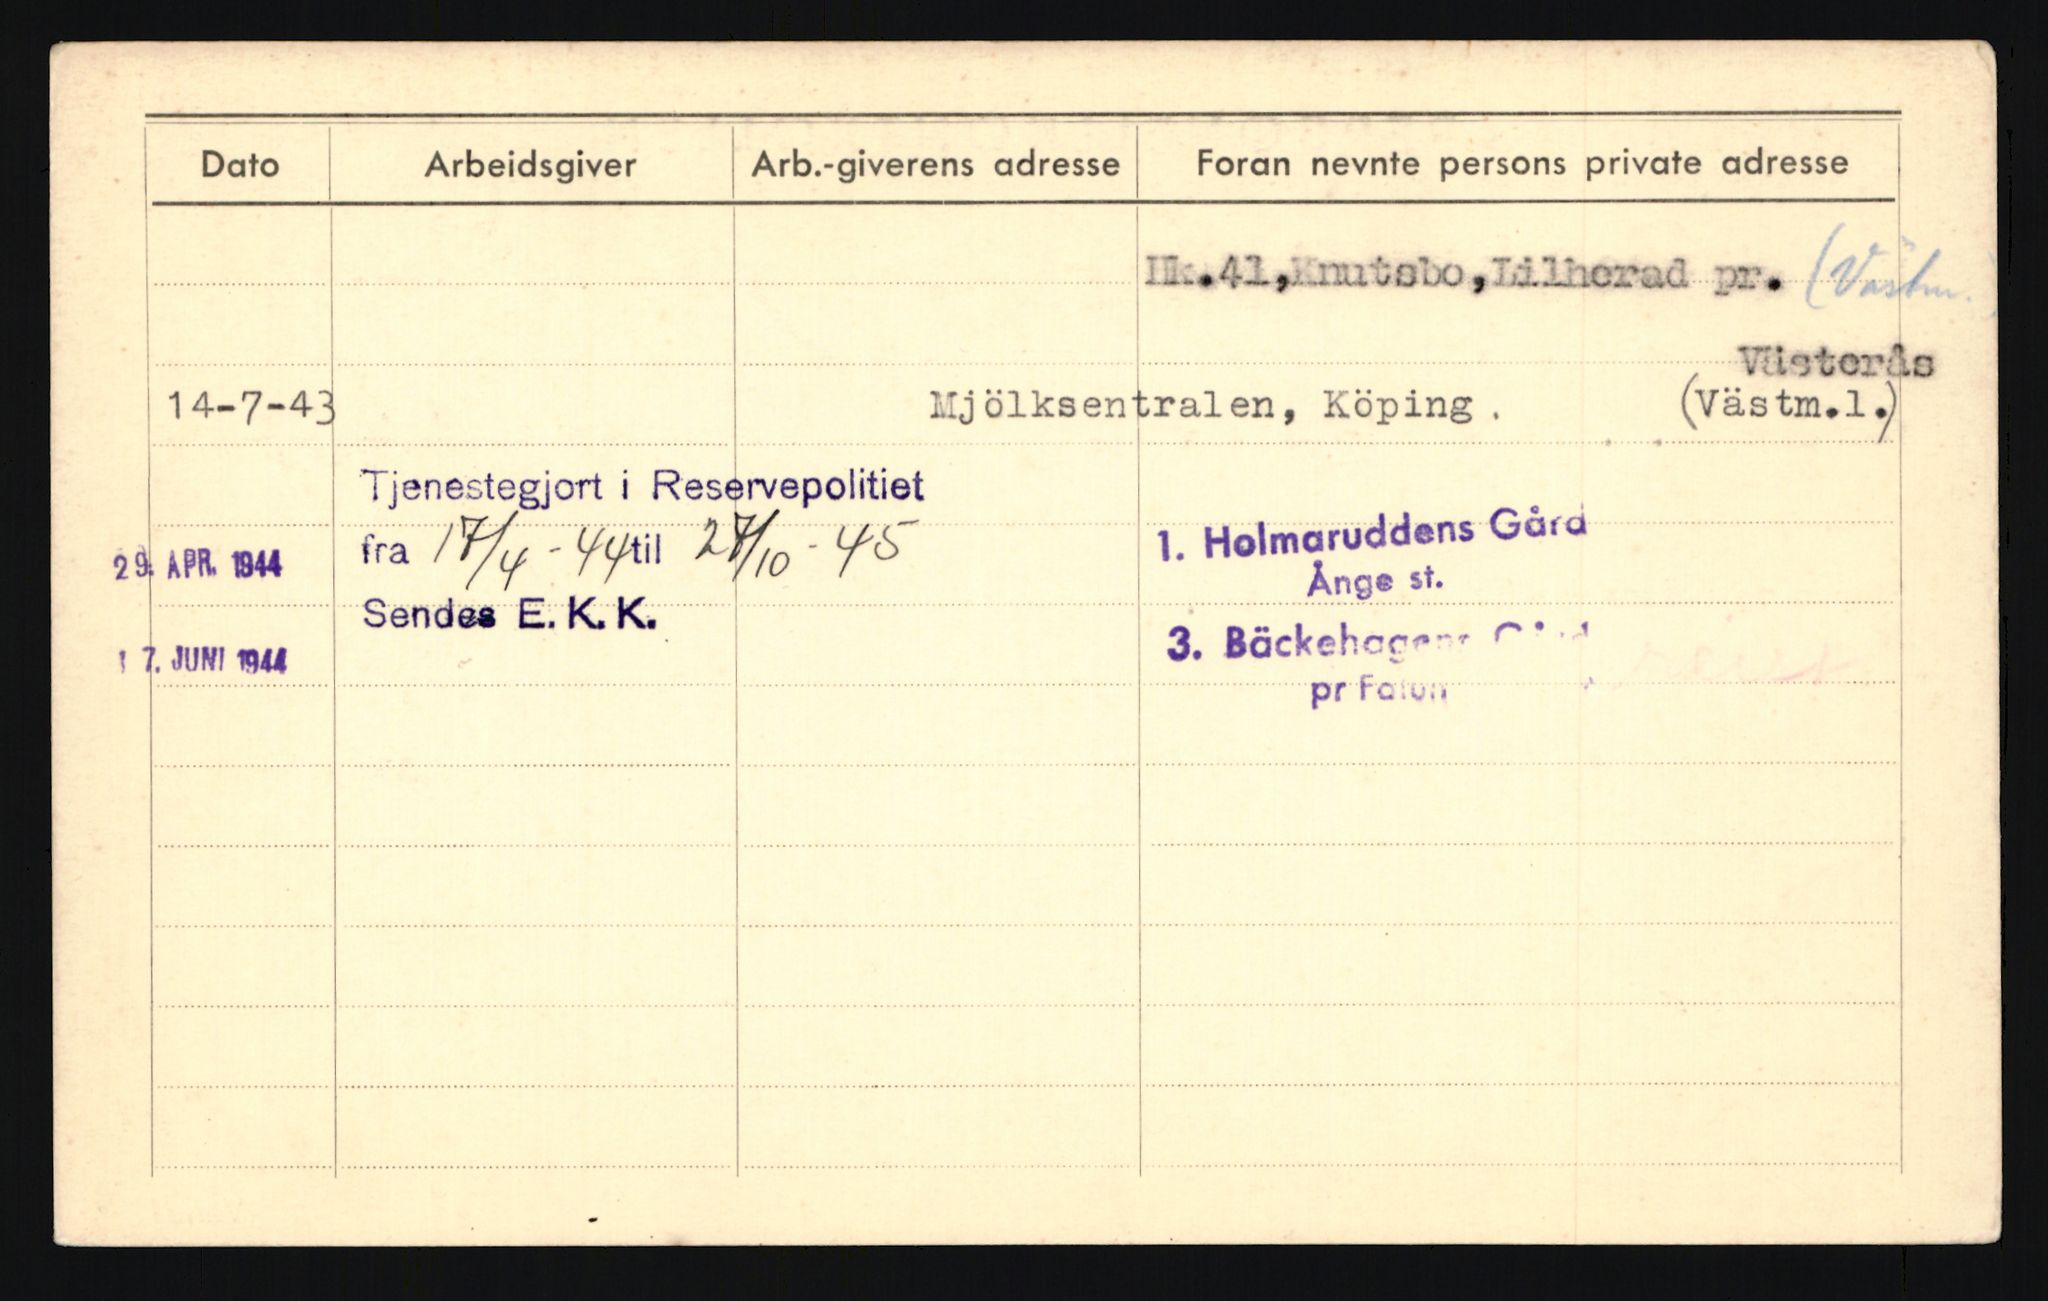 Dato Arbeidsgiver Arb.-giverens adresse Foran nevnte persons private adresse
Hk.41,Knutsbo,Lilherad pr. (Västm.)
Västerås
14-7-43 Mjölksentralen, Köping. (Västm.l.)
Tjenestegjort i Reservepolitiet
29. APR. 1944 fra 17/4 - 44 til 27/10 - 45
1. Holmaruddens Gård
Ånge st.
Sendes E. K. K.
17. JUNI 1944
3. Bäckehagens Gård
pr Falun